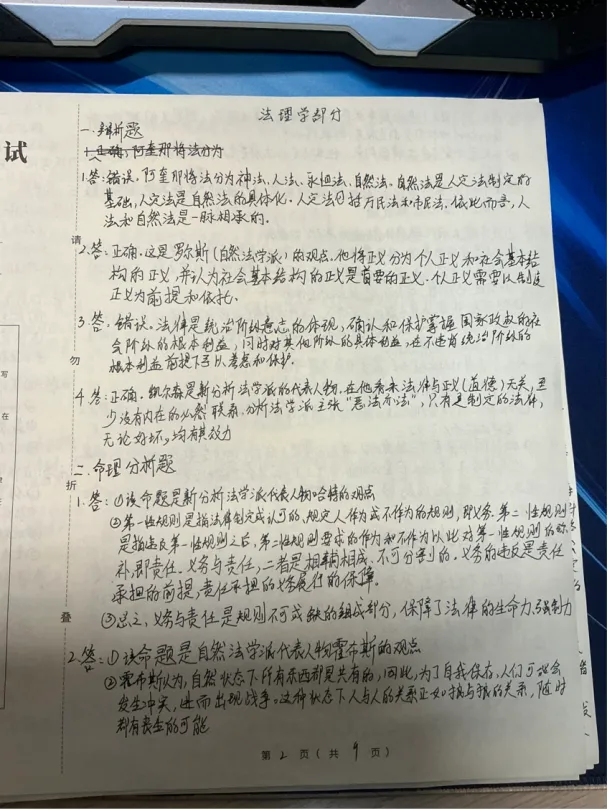 法理学部分
试
一.辨析题
1.正确，阿奎那将法分为
1.答：错误。阿奎那将法分为神法、人法、永恒法、自然法。自然法是人定法制定的
基础，人定法是自然法的具体化。人定法包括万民法和市民法。依此而言，人
法和自然法是一脉相承的。
请
2.答：正确。这是罗尔斯（自然法学派）的观点。他将正义分为个人正义和社会基本结
构的正义，并认为社会基本结构的正义是首要的正义。个人正义需要以制度
正义为前提和依托。
3.答：错误。法律是统治阶级意志的体现，确认和保护掌握国家政权的社
会阶级的根本利益，同时对其他阶级的具体利益，在不违背统治阶级的
勿
写
根本利益前提下予以考虑和保护。
4.答：正确。凯尔森是新分析法学派的代表人物。在他看来法律与正义（道德）无关，至
在
少没有内在的必然联系。分析法学派主张“恶法亦法”，只有是制定的法律，
无论好坏，均有其效力
二.命理分析题
折
1.答：①该命题是新分析法学派代表人物哈特的观点
②第一性规则是指法律制定或认可的、规定人作为或不作为的规则，即义务。第二性规则
是指违反第一性规则之后，第二性规则要求的作为和不作为以此对第一性规则的
补，即责任。义务与责任，二者是相辅相成、不可分割的。义务的违反是责任
承担的前提，责任承担的义务履行的保障。
叠
③总之，义务与责任是规则不可或缺的组成部分，保障了法律的生命力与强制力
2.答：①该命题是自然法学派代表人物霍布斯的观点
②霍布斯认为，自然状态下所有东西都是共有的，因此，为了自我保存，人们可能会
发生冲突，进而出现战争。这种状态下人与人的关系正如狼与狼的关系，随时
都有丧生的可能
第2页（共9页）